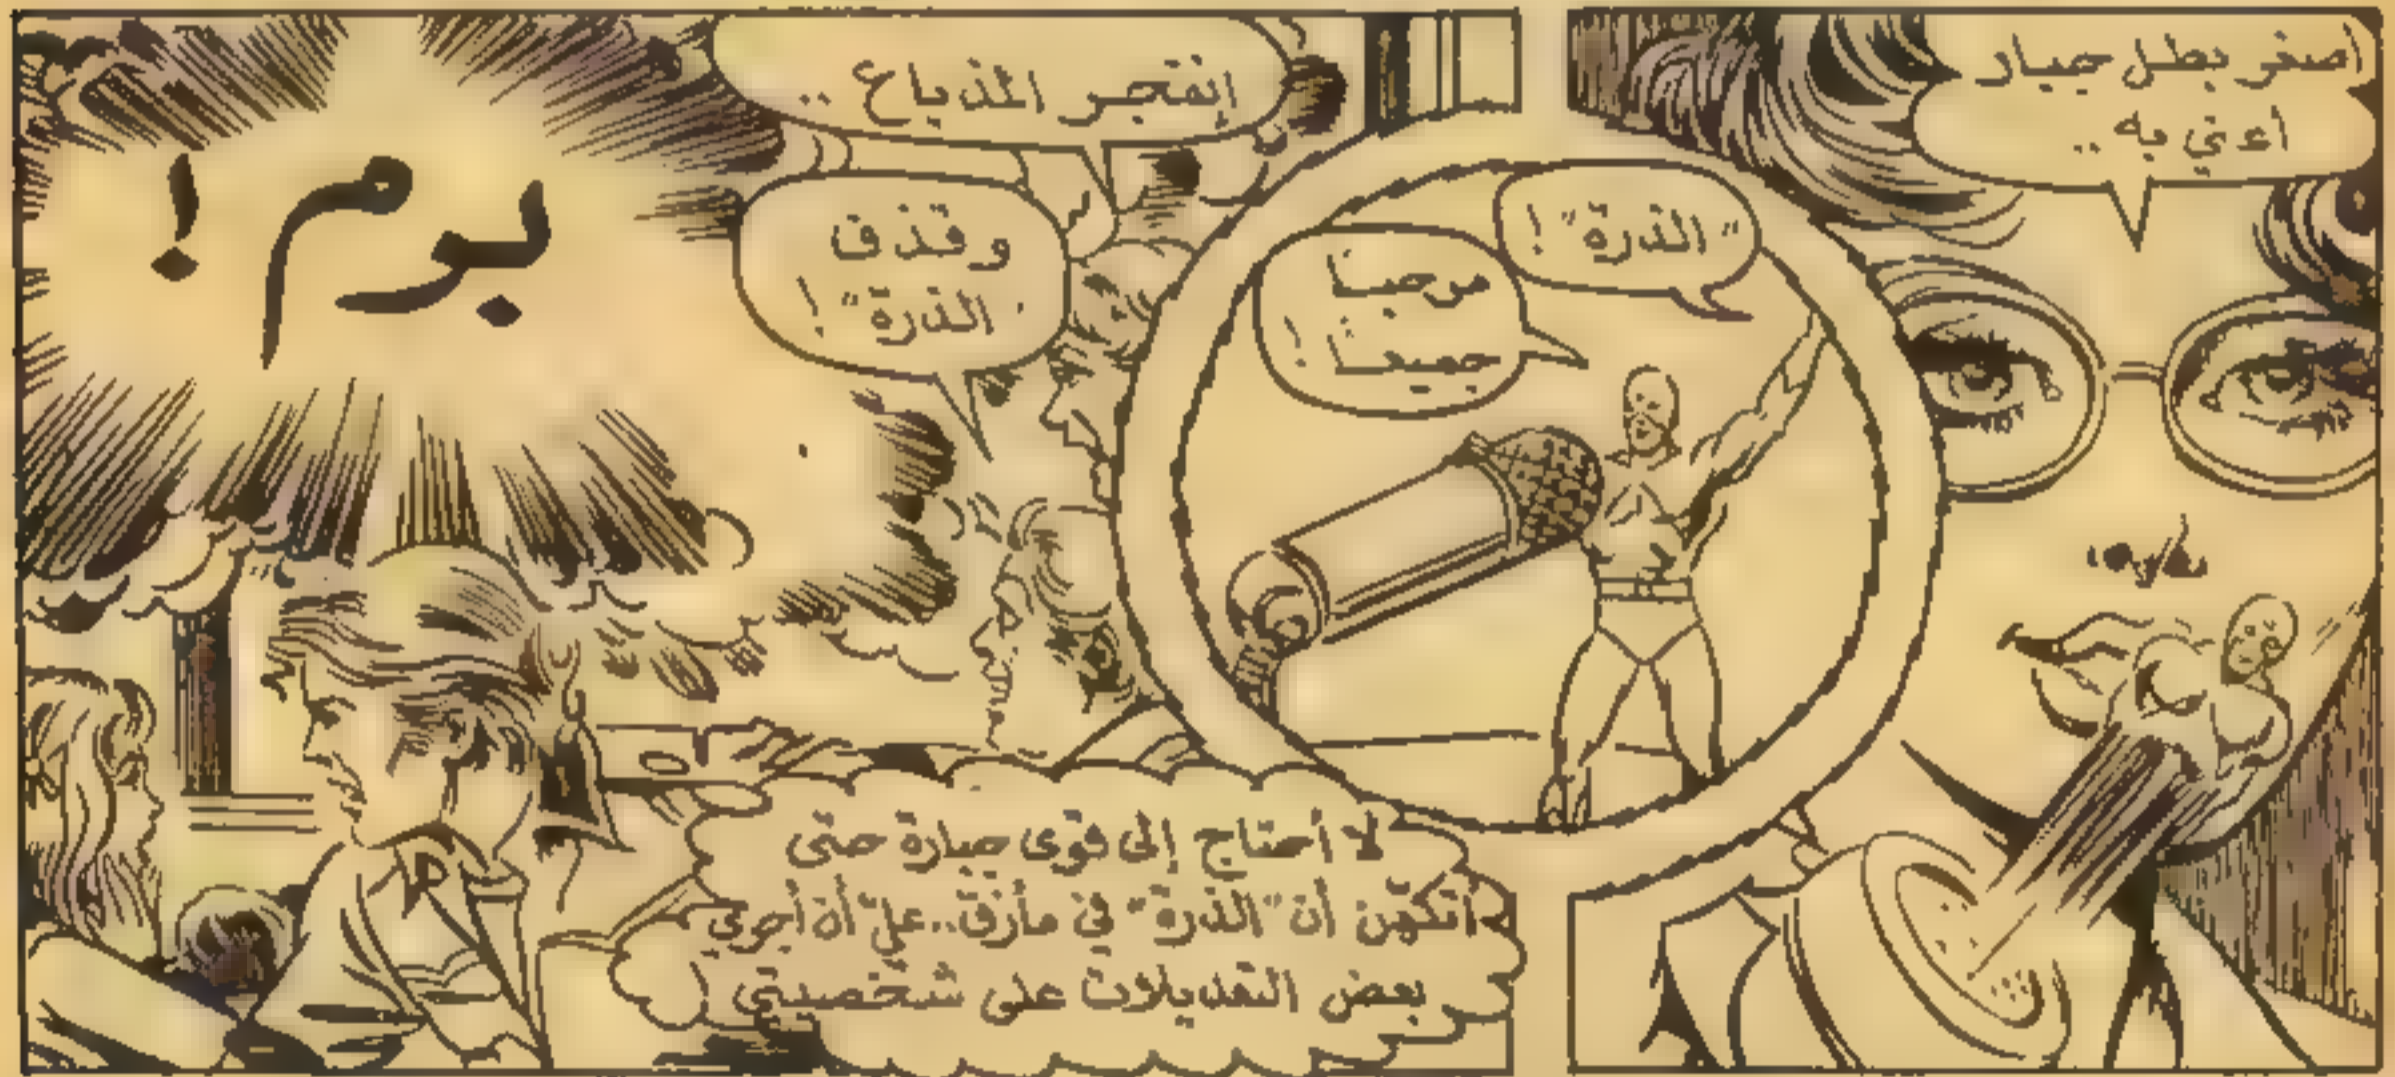 أصغر بطل جبار
أعني به ..
"الذرة" !
مرحباً
جميعاً !
إنفجر المذياع ..
وقذف
"الذرة" !
بوم !
لا أحتاج إلى قوى جبارة حتى
أتكهّن أن "الذرة" في مأزق..عليّ أن أجري
بعض التعديلات على شخصيتي